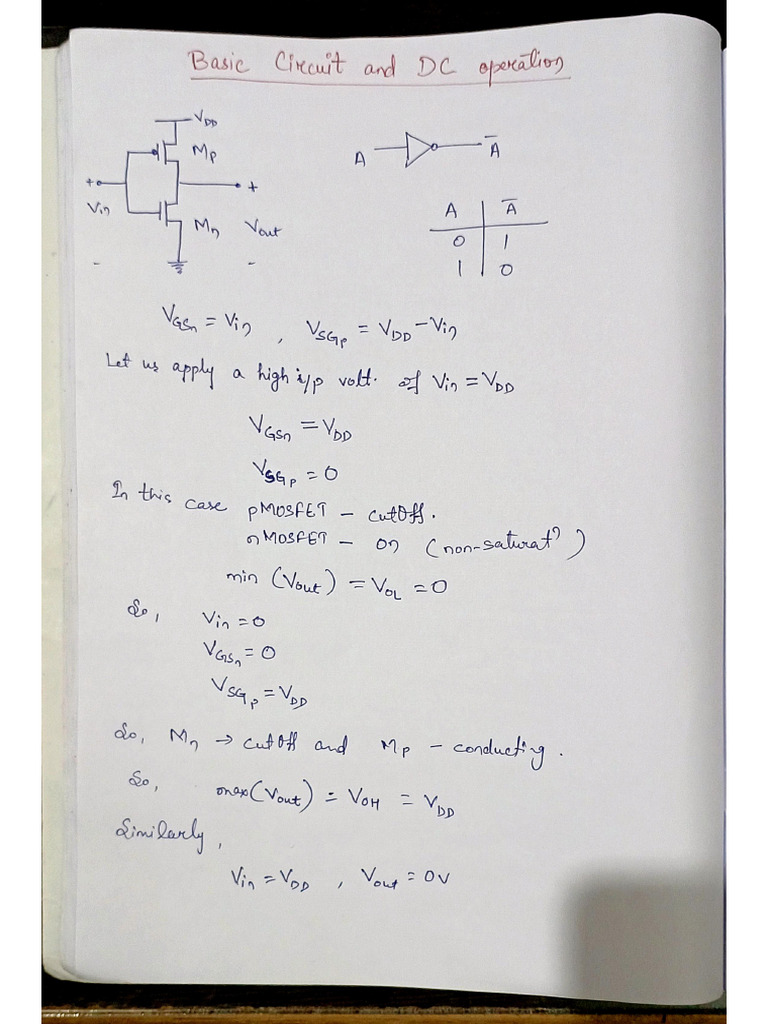 Basic Circuit and DC operation
VDD
Mp
+
+
Vin
Mn
Vout
-
-
A
A̅
A | A̅
0 | 1
1 | 0
VGSn = Vin , VSGp = VDD - Vin
Let us apply a high i/p volt. of Vin = VDD
VGSn = VDD
VSGp = 0
In this case pMOSFET - cutoff.
nMOSFET - on (non-saturatn)
min (Vout) = VOL = 0
So, Vin = 0
VGSn = 0
VSGp = VDD
So, Mn → cutoff and Mp - conducting.
So, max(Vout) = VOH = VDD
Similarly,
Vin = VDD , Vout = 0V